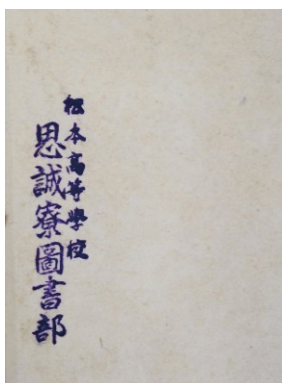 松本高等學校
思誠寮圖書部